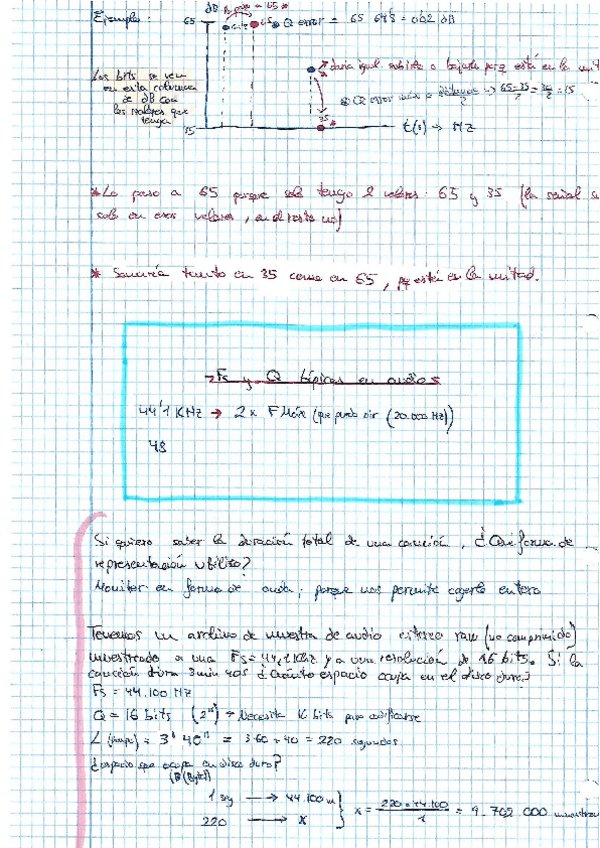 Ejemplo: 65 dB Lo paso a 65 *
65 * Q error = 65 - 64'8 = 0'02 dB
daría igual subirlo o bajarlo porq está en la mit
Los bits se ven en esta columna de dB con los valores que tenga
Q error
65-35
= 15
35
35 t(s) → Hz
* Lo paso a 65 porque solo tengo 2 valores: 65 y 35 (la señal s
solo en esos valores, en el resto no)
* Sonaría tanto en 35 como en 65, pq está en la mitad.
→ Fs y Q típicas en audios
44'1 KHz → 2 x F Máx (que puedo oir (20.000 Hz))
48
Si quiero saber la duración total de una canción, ¿Qué forma de
representación utilizo?
Monitor en forma de onda, porque nos permite cogerlo entero
Tenemos un archivo de muestra de audio estereo raw (no comprimido)
muestreado a una Fs = 44,1 Khz y a una resolución de 16 bits. Si la
canción dura 3 min 40s ¿Cuánto espacio ocupa en el disco duro?
Fs = 44.100 Hz
Q = 16 bits (2¹⁶) → Necesita 16 bits para codificarse
L (tiempo) = 3' 40'' = 3·60 + 40 = 220 segundos
¿espacio que ocupa en disco duro?
(B (Byte))
1 sg → 44.100 m
220 → x
x = 220 · 44.100 / 1 = 9.702.000 muestras